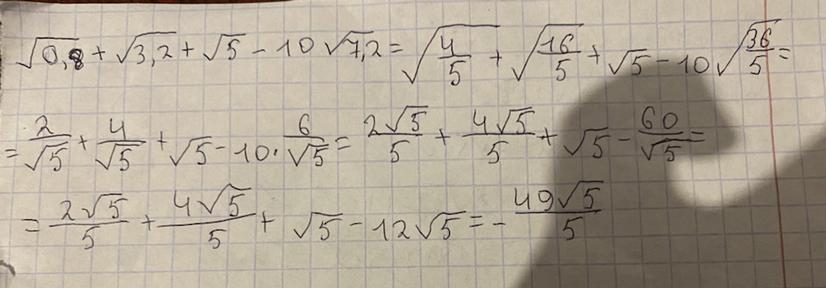 √0,8 + √3,2 + √5 − 10√7,2 = √4/5 + √16/5 + √5 − 10√36/5 =
= 2/√5 + 4/√5 + √5 − 10 · 6/√5 = 2√5/5 + 4√5/5 + √5 − 60/√5 =
= 2√5/5 + 4√5/5 + √5 − 12√5 = − 49√5/5